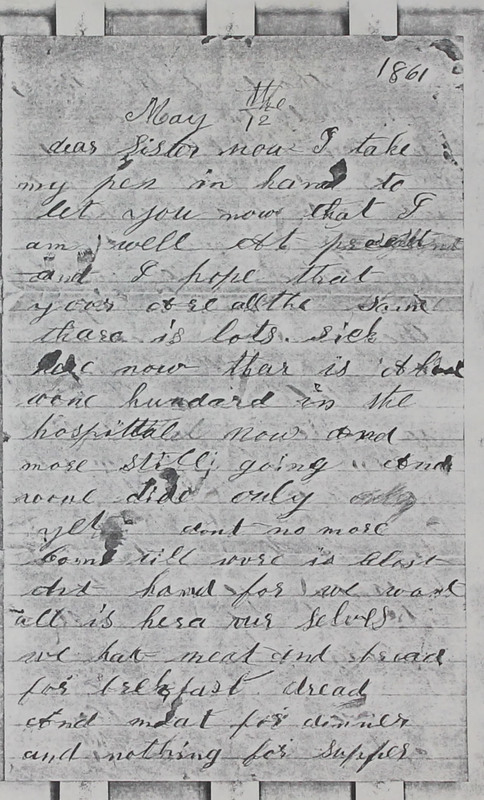 1861
May the
12
dear Sister now I take
my pen in hand to
let you now that I
am well At present
and I pope that
your are all the same
thare is lots sick
here now thar is
wone hundard in the
hospittal now and
more still going And
wone dide only
yet dont no more
till wore is
And hand for we want
all is hera our selvs
we hat meat and bread
for brekfast dread
And meat for dinner
and nothing for supper